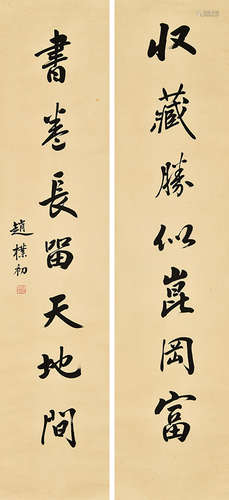 收藏勝似崑岡富
書卷長留天地間
趙樸初